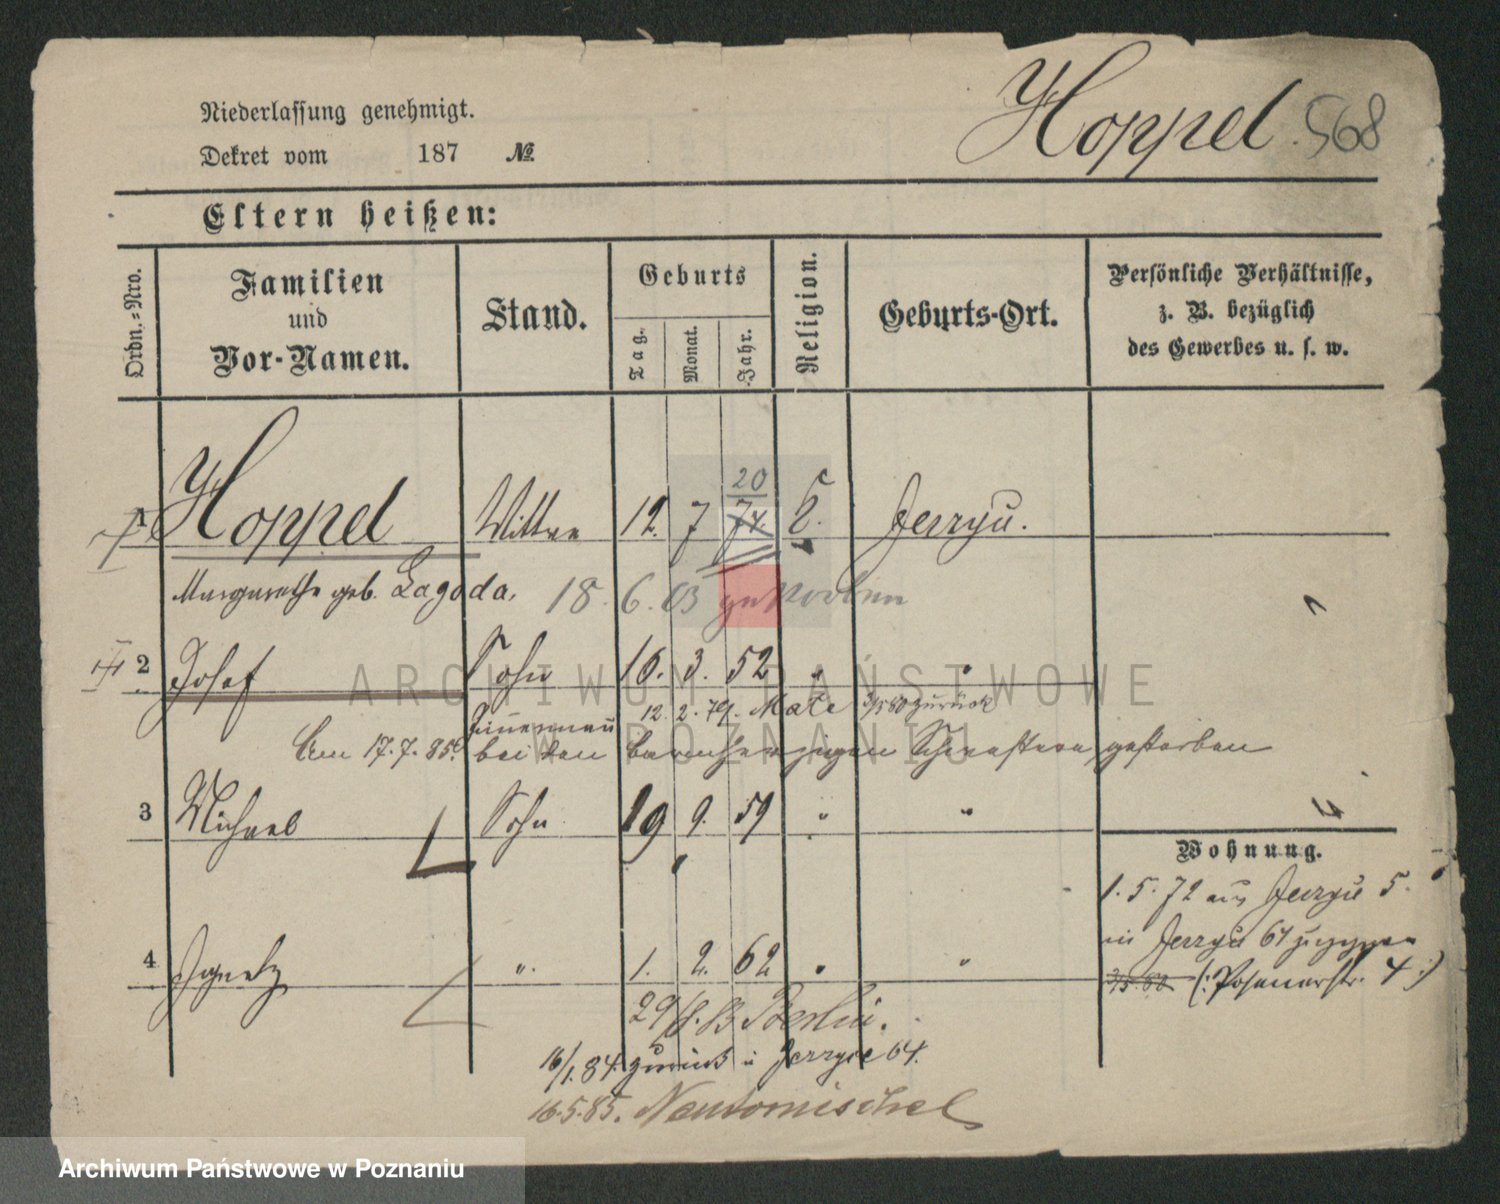 Niederlassung genehmigt.
Dekret vom 187 №
Hoppel 568
Eltern heißen:
Ordn.-Nro.
Familien
und
Vor-Namen.
Stand.
Geburts
Tag.
Monat.
Jahr.
Religion.
Geburts-Ort.
Persönliche Verhältnisse,
z. B. bezüglich
des Gewerbes u. s. w.
20
1 Hoppel Wittwe 12. 7 74. k. Jerzyce.
Margarethe geb. Lagoda,
18. 6. 03
2 Josef Sohn 16. 3. 52 " "
12. 2. 79. zurück
Am 17.7.85. bei den barmherzigen Schwestern gestorben
3 Michael Sohn 19 9. 59 " "
Wohnung.
1. 5. 72 aus Jerzyce 5.
in Jerzyce 64 gezogen
(: Posenerstr. 4 :)
4 Ignatz " 1. 2. 62 " "
29/8. 83 Berlin.
16/1. 84. zurück Jerzyce 64.
16.5.85. Neutomischel
ARCHIWUM PAŃSTWOWE
W POZNANIU
Archiwum Państwowe w Poznaniu